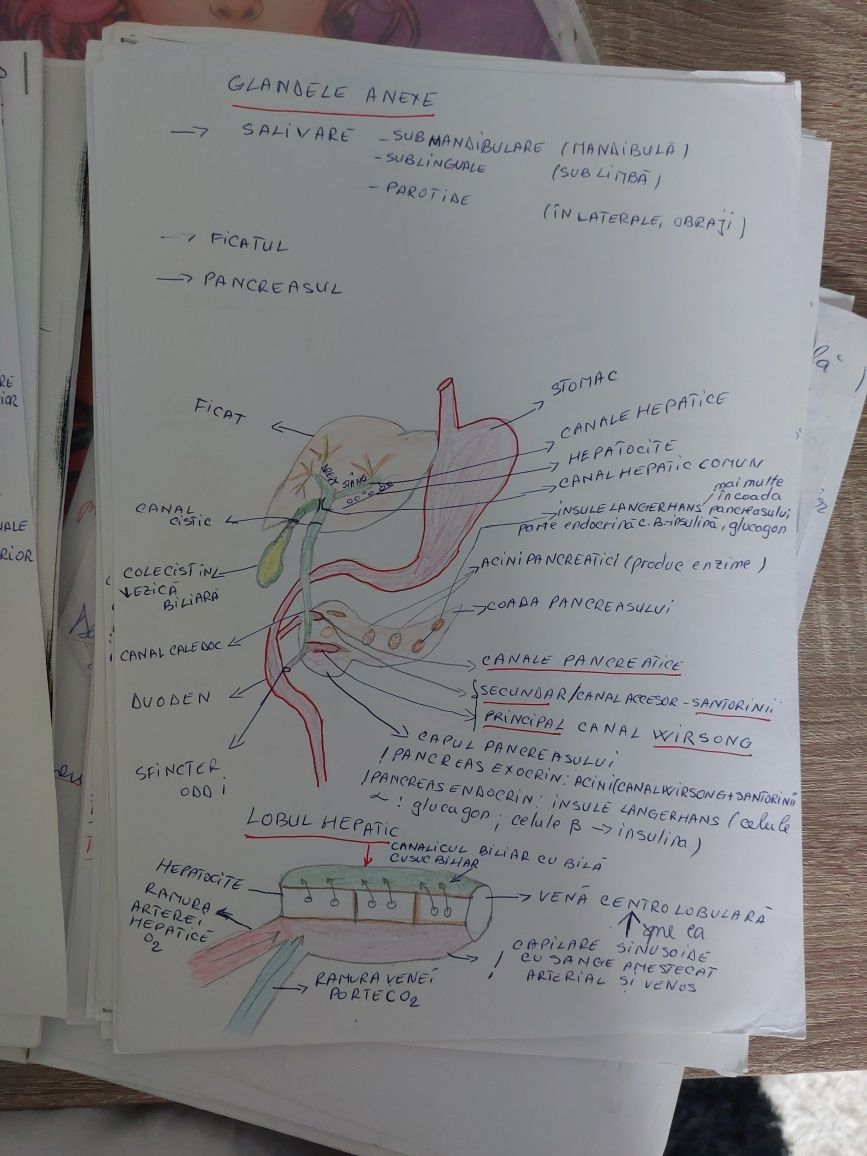 GLANDELE ANEXE
→ SALIVARE - SUBMANDIBULARE (MANDIBULĂ)
- SUBLINGUALE (SUB LIMBĂ)
- PAROTIDE (ÎN LATERALE, OBRAJI)
→ FICATUL
→ PANCREASUL
STOMAC
FICAT
CANALE HEPATICE
HEPATOCITE
CANAL HEPATIC COMUN
CANAL CISTIC
mai multe în coada pancreasului
INSULE LANGERHANS
parte endocrină c. B-insulină, glucagon
COLECIST ÎN
VEZICĂ
BILIARĂ
ACINI PANCREATICI (produc enzime)
COADA PANCREASULUI
CANAL CALEDOC
CANALE PANCREATICE
DUODEN
SECUNDAR/CANAL ACCESOR - SANTORINII
PRINCIPAL CANAL WIRSONG
SFINCTER
ODDI
CAPUL PANCREASULUI
! PANCREAS EXOCRIN: ACINI (CANAL WIRSONG + SANTORINII
! PANCREAS ENDOCRIN: INSULE LANGERHANS (celule
α : glucagon; celule β → insulina)
LOBUL HEPATIC
CANALICUL BILIAR CU BILĂ
CU SUC BILIAR
HEPATOCITE
RAMURA
ARTEREI
HEPATICE
O2
VENĂ CENTROLOBULARĂ
CAPILARE SINUSOIDE
! CU SANGE AMESTECAT
ARTERIAL ȘI VENOS
RAMURA VENEI
PORTE CO2